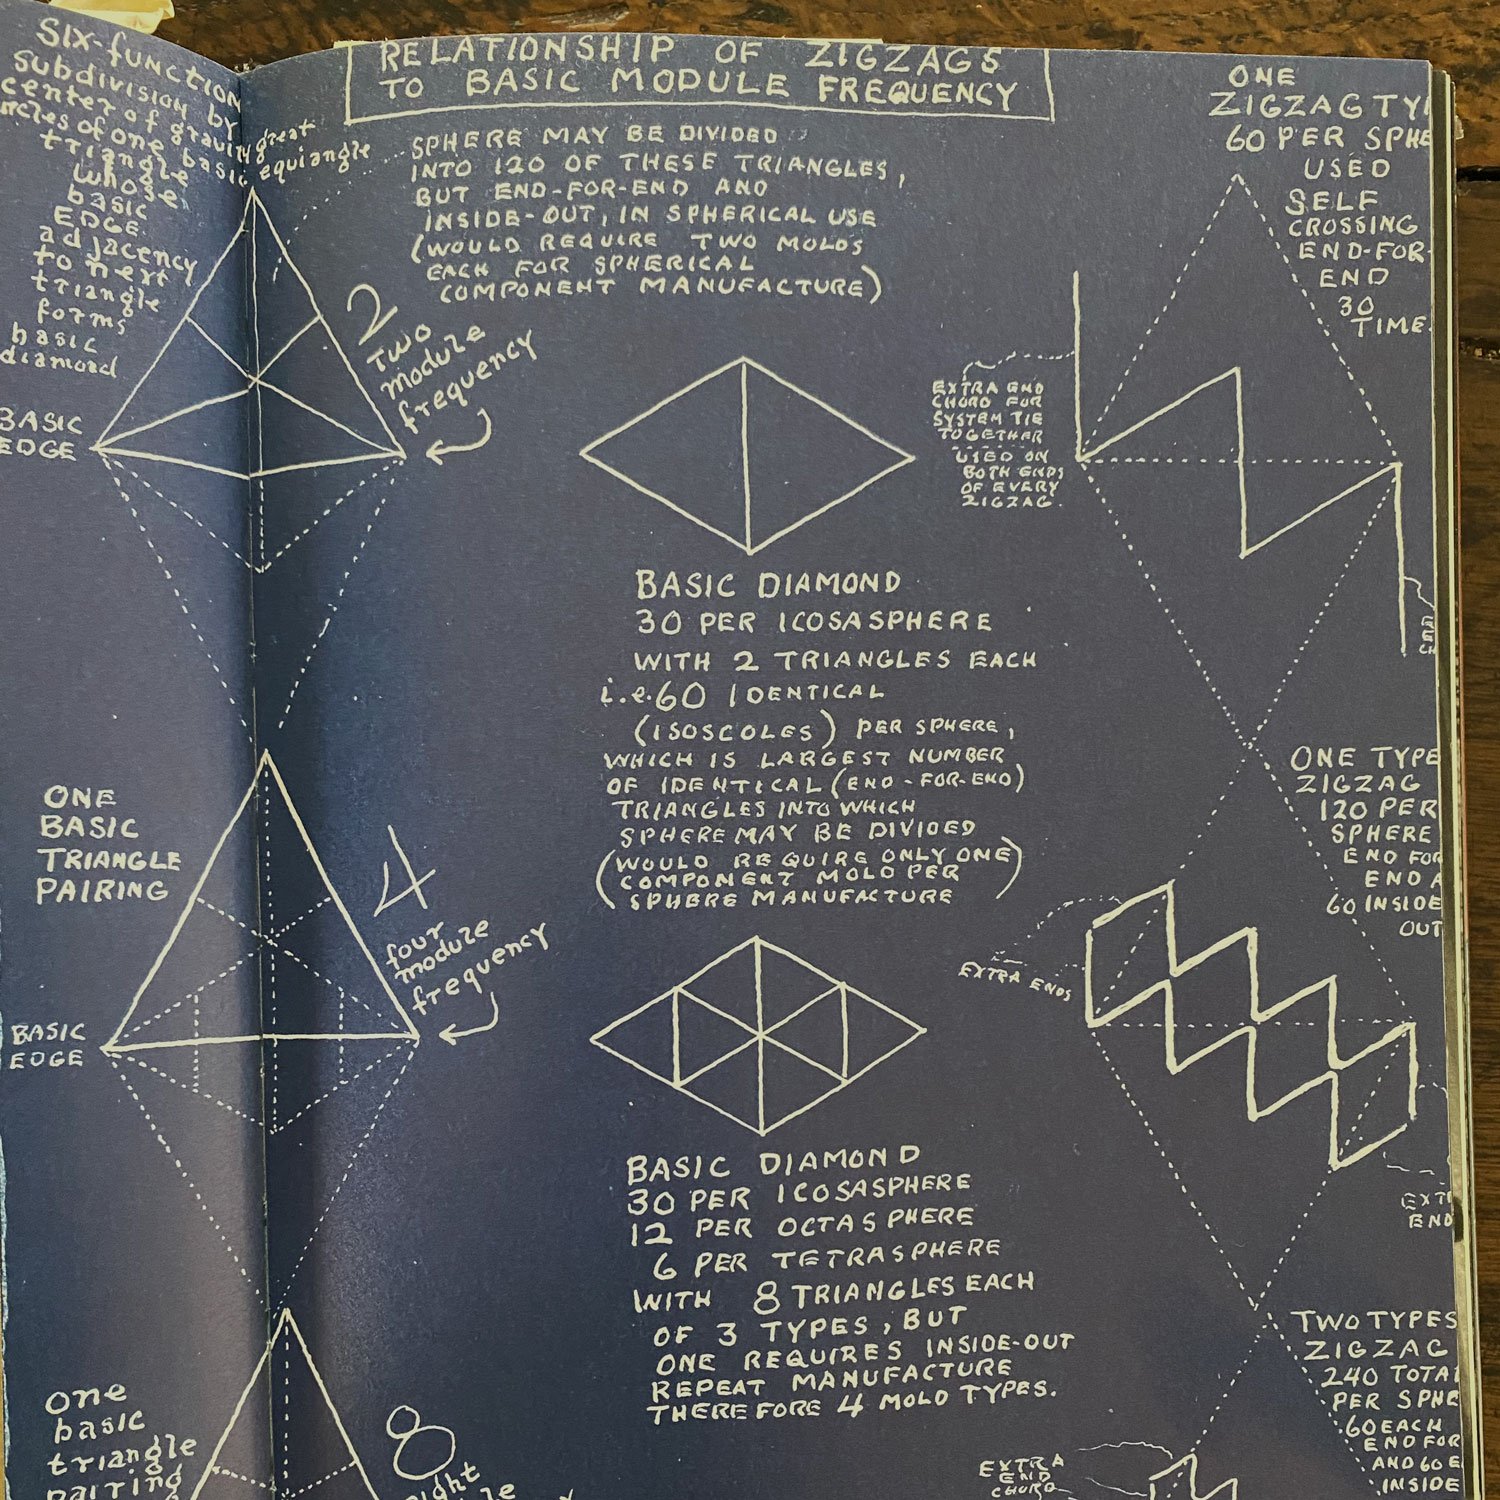 SIX-function
subdivision by
center of gravity great
circles of one basic equiangle
triangle
whose
basic
EDGE
adjacency
to next
triangle
forms
basic
diamond
BASIC
EDGE
RELATIONSHIP OF ZIGZAGS
TO BASIC MODULE FREQUENCY
SPHERE MAY BE DIVIDED
INTO 120 OF THESE TRIANGLES,
BUT END-FOR-END AND
INSIDE-OUT, IN SPHERICAL USE
(WOULD REQUIRE TWO MOLDS
EACH FOR SPHERICAL
COMPONENT MANUFACTURE)
2
Two
module
frequency
BASIC DIAMOND
30 PER ICOSASPHERE
WITH 2 TRIANGLES EACH
i.e. 60 IDENTICAL
(ISOSCOLES) PER SPHERE,
WHICH IS LARGEST NUMBER
OF IDENTICAL (END-FOR-END)
TRIANGLES INTO WHICH
SPHERE MAY BE DIVIDED
(WOULD REQUIRE ONLY ONE)
(COMPONENT MOLD PER)
SPHERE MANUFACTURE
ONE
ZIGZAG
60 PER
USED
SELF
CROSSING
END-FOR-
END
30
TIME
EXTRA END
CHORD FOR
SYSTEM TIE
TOGETHER
USED ON
BOTH ENDS
OF EVERY
ZIGZAG.
ONE
BASIC
TRIANGLE
PAIRING
BASIC
EDGE
4
four
module
frequency
BASIC DIAMOND
30 PER ICOSASPHERE
12 PER OCTASPHERE
6 PER TETRASPHERE
WITH 8 TRIANGLES EACH
OF 3 TYPES, BUT
ONE REQUIRES INSIDE-OUT
REPEAT MANUFACTURE
THEREFORE 4 MOLD TYPES.
ONE TYPE
ZIGZAG
120 PER
SPHERE
END FOR
END
60 INSIDE
OUT
EXTRA ENDS
END
one
basic
triangle
pairing
8
TWO TYPES
ZIGZAG
240 TOTAL
PER
60 EACH
END FOR
AND 60
INSIDE
EXTRA
END
CHORD